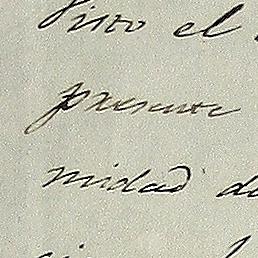 Visto el
presente
midad de